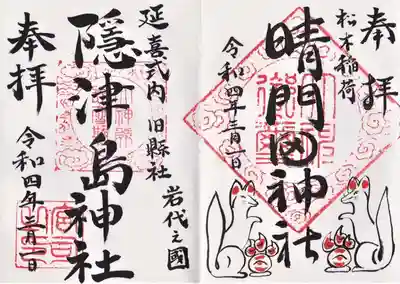 奉拝
松木稲荷
晴門田神社
令和四年三月一日
延喜式内 旧縣社
岩代之國
隱津島神社
奉拝
令和四年三月一日